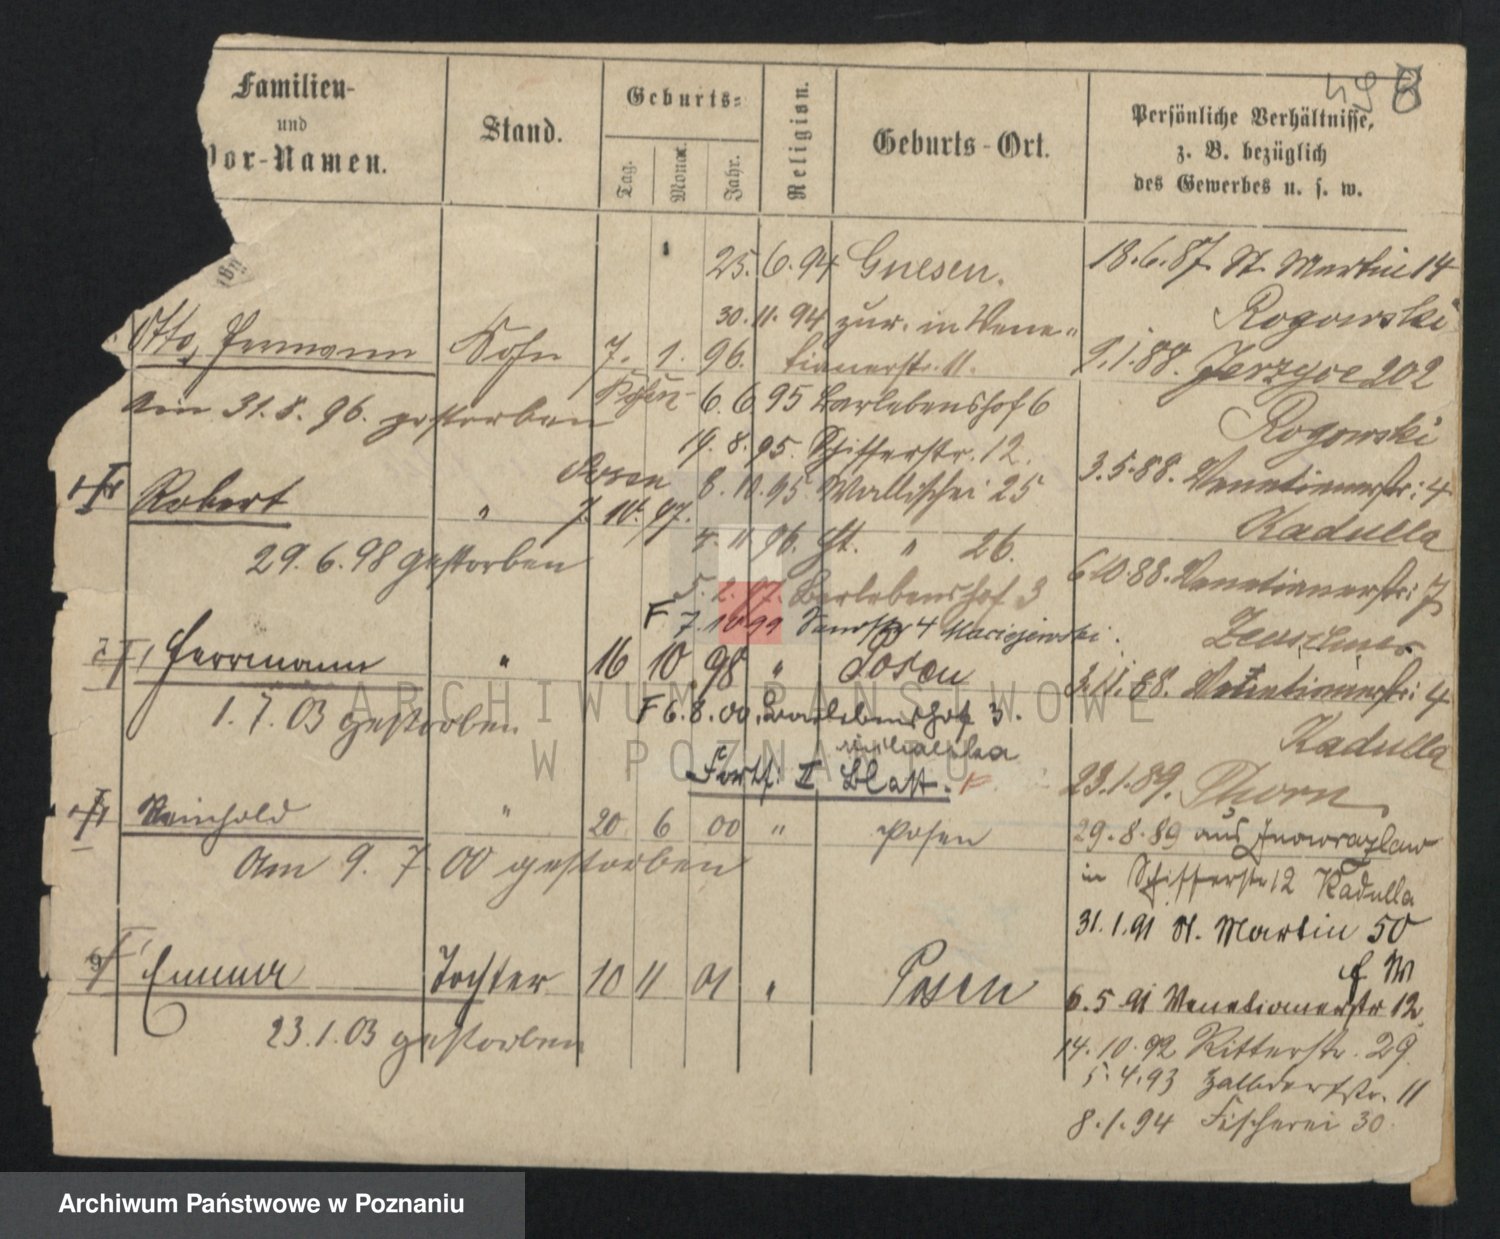 Familien-
und
Vor-Namen.
Stand.
Geburts-
Tag.
Monat.
Jahr.
Religion.
Geburts-Ort.
Persönliche Verhältnisse,
z. B. bezüglich
des Gewerbes u. s. w.
25. 6. 94 Gnesen.
30. 11. 94 zur. in Vene-
tianerstr. 11.
Otto, Hermann Sohn 7. 1. 96.
am 31. 8. 96. gestorben
6. 6. 95 Berlebenshof 6
14. 8. 95. Schifferstr. 12.
8. 10. 95 Wallischei 25
Robert " Posen 7. 10. 97.
29. 6. 98 gestorben
4. 11. 96. St. " 26.
5. 2. 97. Berlebenshof 3
F 7. 10 99 4 Maciejewski
Herrmann " 16 10 98 " Posen
1. 7. 03 gestorben
F 6. 8. 00. Berlebenshof 3.
Fortf. II Blatt.
Reinhold " 20 6 00 " Posen
Am 9. 7. 00 gestorben
9 Emma Tochter 10 11 01 " Posen
23. 1. 03 gestorben
18. 6. 87. St. Martin 14
Rogowski
9. 1. 88. Jerzyce 202
Rogowski
3. 5. 88. Venetianerstr: 4
Kadulla
6 10. 88. Venetianerstr: 7
3. 11. 88. Venetianerstr: 4
Kadulla
23. 1. 89. Thorn
29. 8. 89 aus Inowrazlaw
in Schifferstr 12 Kadulla
31. 1. 91 St. Martin 50
6. 5 91 Venetianerstr 12.
14. 10. 92 Ritterstr. 29
5. 4. 93 Halbdorfstr. 11
8. 1. 94 Fischerei 30
ARCHIWUM PAŃSTWOWE
W POZNANIU
Archiwum Państwowe w Poznaniu